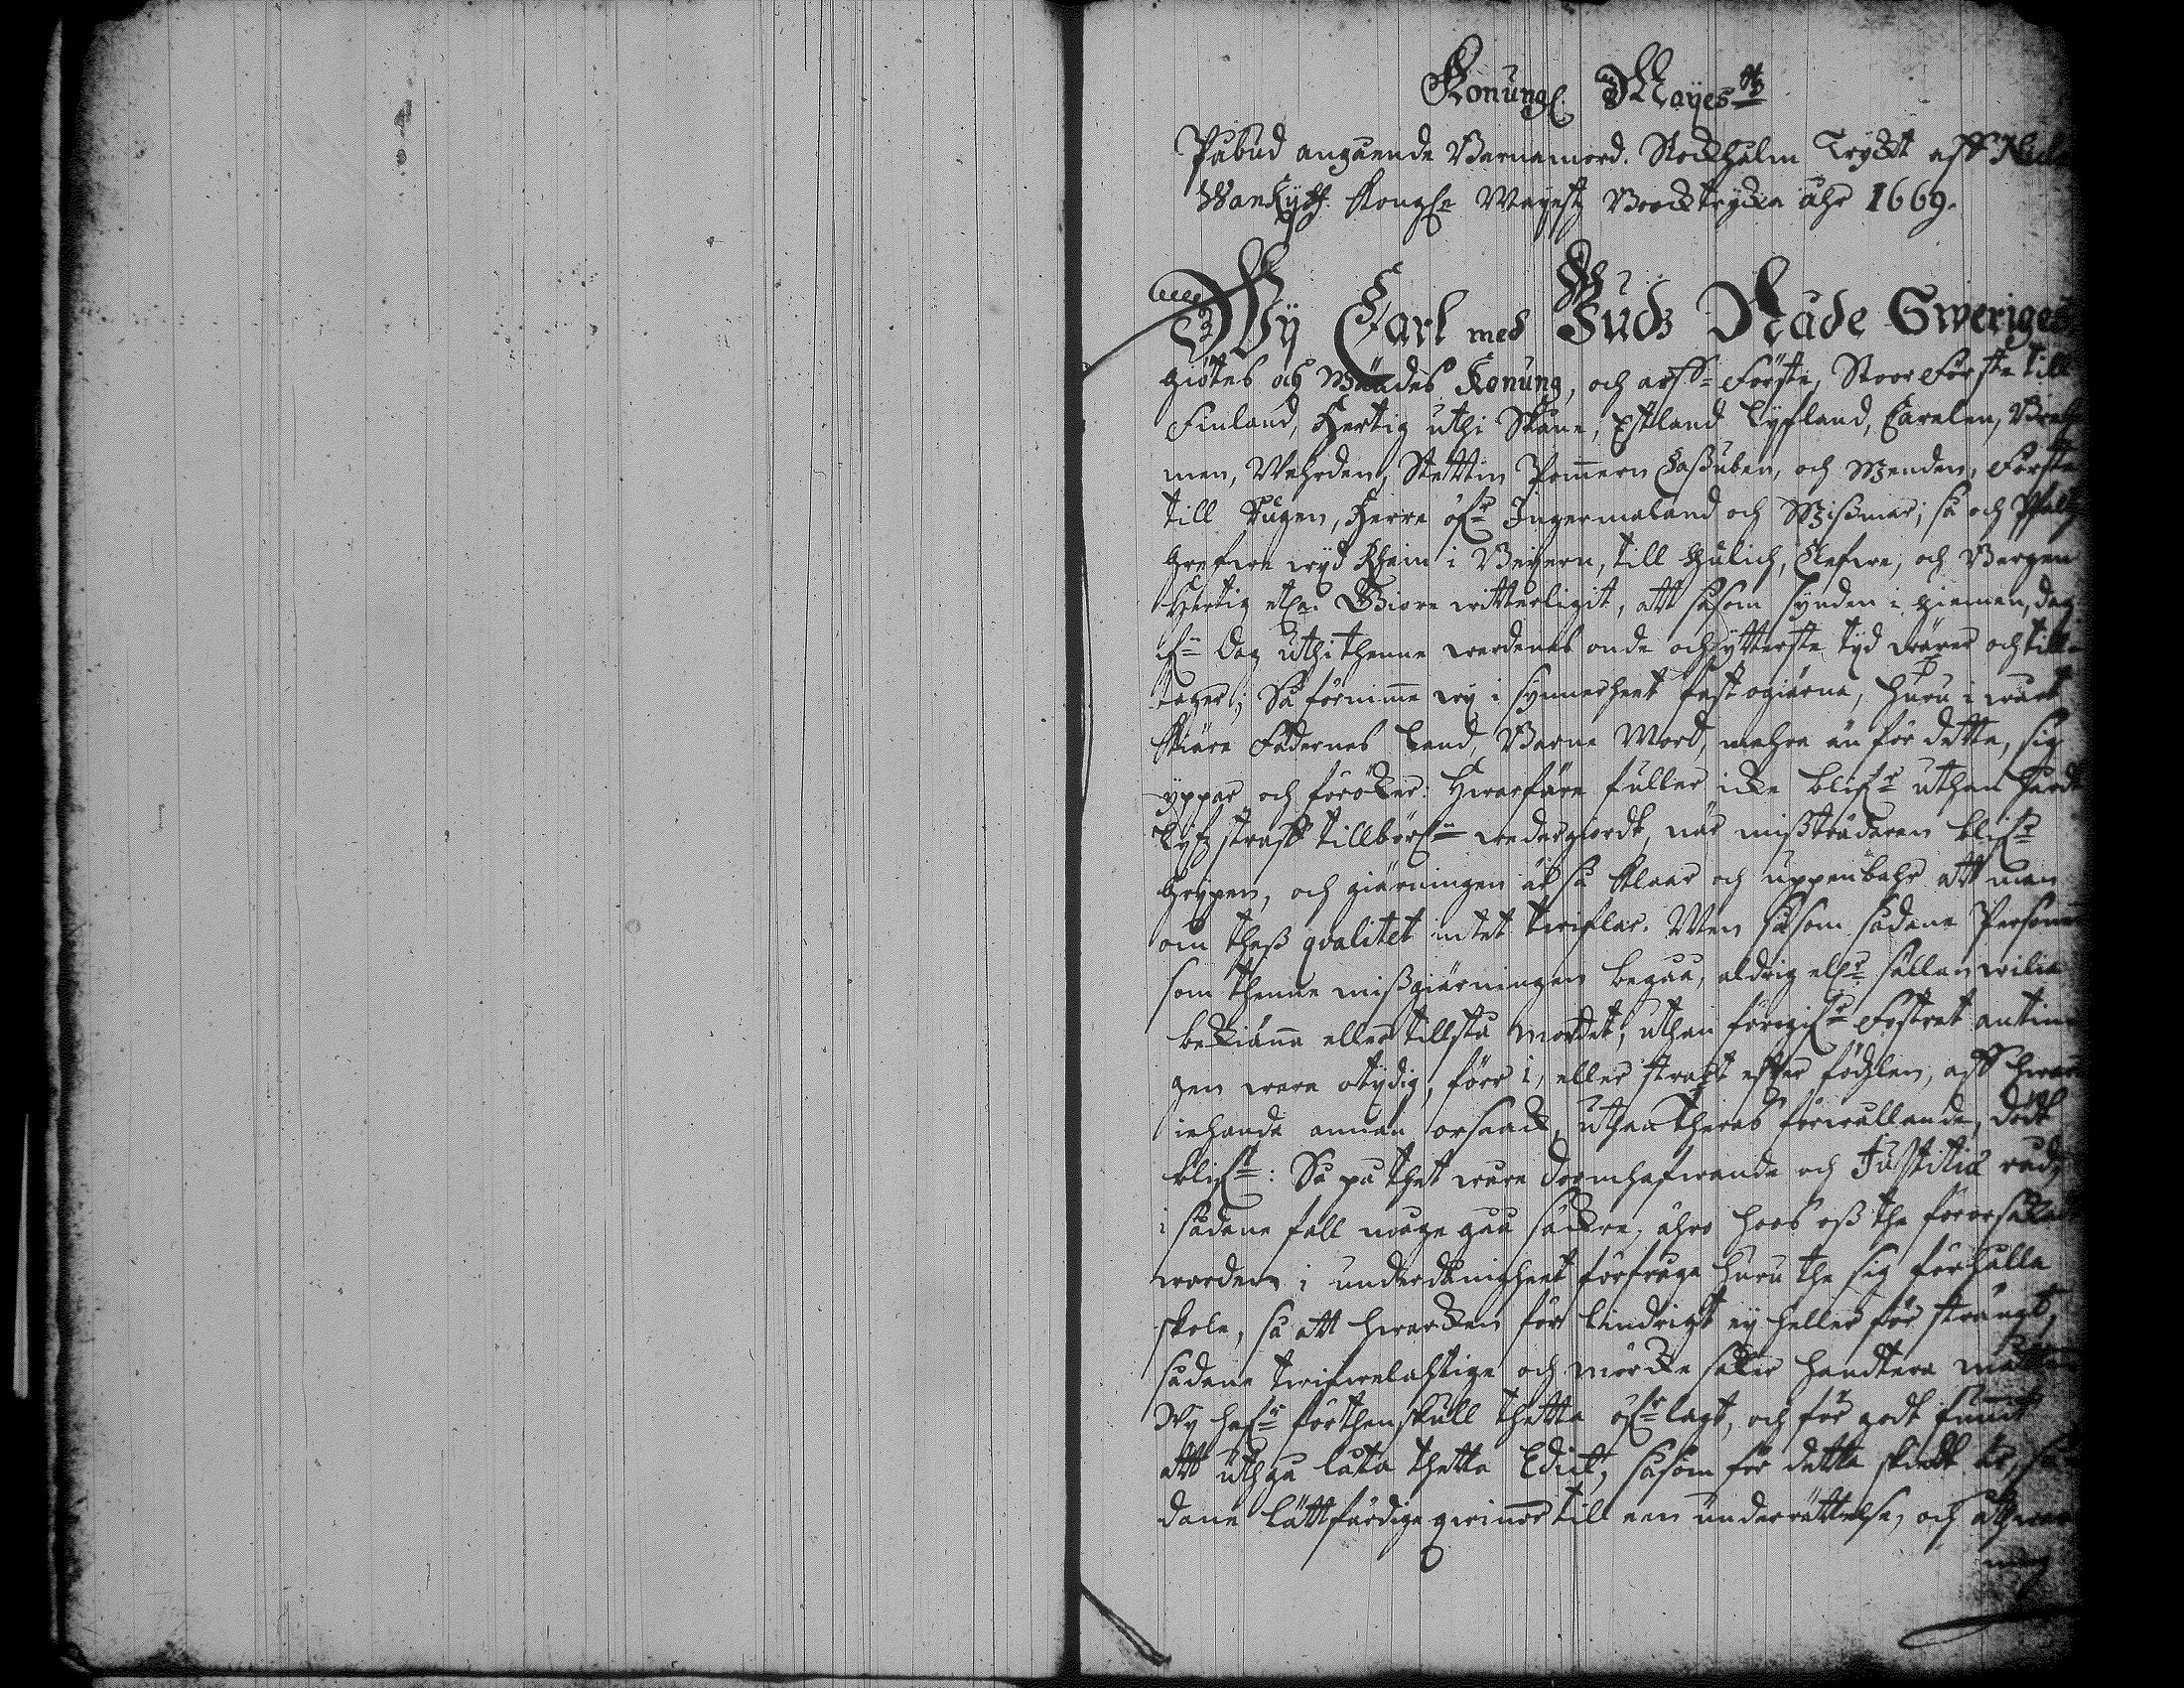 Konungl. Mayestz
Påbud angående Barnamord. Stockholm Tryckt aff Niclas
Wankijff. Kongle Mayestz Boocktryckia åhr 1669.
Wÿ Carl med Gudz Nåde Sweriges
Giötes och Wändes Konung, och arff-Förste, StoorFörste till
Finland, Hertig uthi Skåne, Estland Lyfland, Carelen, Breh-
men, Wehrden, Stettin Pomern Caßuben, och Wenden, Förste
till Rügen, Herre öfr Ingermaland och Wißmar; så och Pfaltz
Grefwe wyd Rhein i Beijern, till Gülich, Clefwe, och Bergen
Hertig etc. Giöre witterligit, att såsom synden i giemen, dag
ifrn Dag uthi thenne werdenes onde och ytterste tyd wäxer och till-
tager; Så förnimme wy i synnerheet fast ogiärna, huru i wårt
Kiäre Fädernes Land, Barne Mord, mehra än för detta, sig
yppar och föröker: Hwarföre fuller icke blifr uthan hårdt
Lyfz straff tillbörln wedergiordt, när mißdådaren blifr
Grypen, och giärningen är så klaar och uppenbahr att man
om theß qvalitet intet twiflar. Men såsom sådane Personer
som thenne mißgiärningen begåå, aldrig elr sällan wilia
bekiänna eller tillstå mordet, uthan föregifr Fostret antin-
gen ware otydig, förr i, eller straxt effter födzlen, aff hwar
iehanda annan orsaack, uthan theras förwållande, dödt
blifit: Så på thet wåre Doomhafwande och Justitiæ råd,
i sådane fall måge gåå säckre, ähro hoos oß the förorsakade
worden i underdånigheet förfråge huru the sig förhålla
skole, så att hwarcken för lindrigt ey heller för strängt,
sådane twifwelachtige och mörcke saker handtera måtte
Wy hafr förthenskull thetta öfrlagt, och för godt funnit
att uthgå låta thetta Edict, såsom för detta skiedt är, så-
dane lättfärdige qwinor till een underrättelse, och athwar
ning